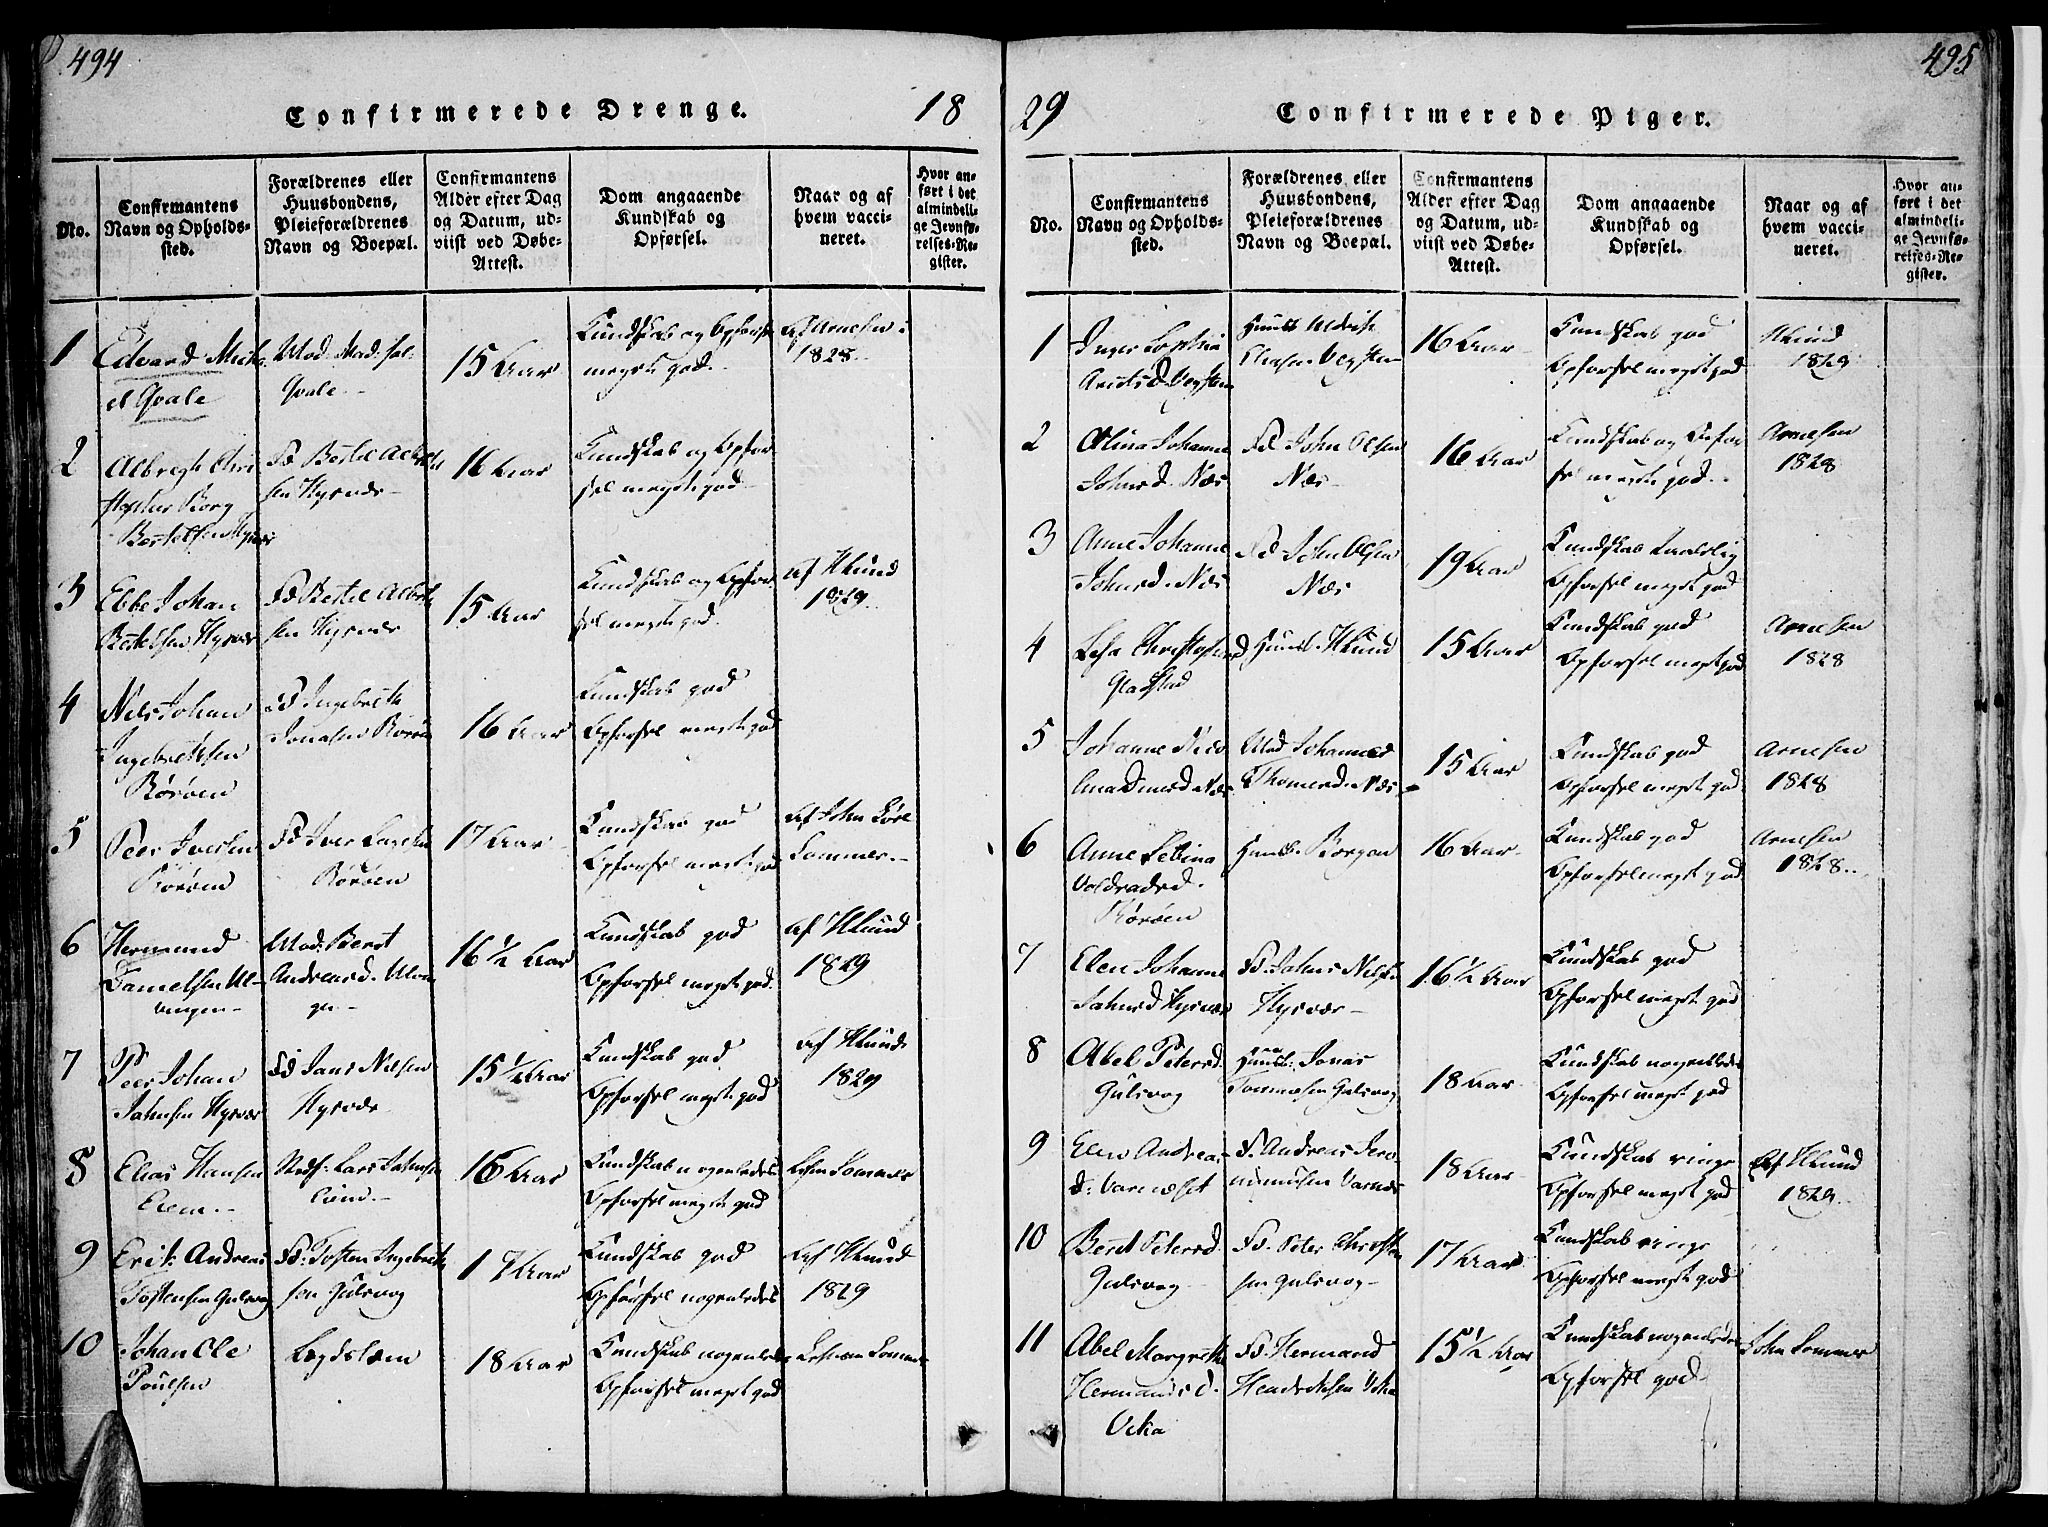 494
Confirmerede Drenge.
18
No.
Confirmantens Navn og Opholds-
sted.
Forældrenes eller
Huusbondens,
Pleieforældrenes
Navn og Boepæl.
Confirmantens
Alder efter Dag
og Datum, ud-
viist ved Døbe-
Attest.
Dom angaaende
Kundskab og
Opførsel.
Naar og af
hvem vacci-
neret.
Hvor an-
ført i det
almindeli-
ge Jevnfø-
relses-Re-
gister.
1
Edvard Mich
el Qvale
Mod. Mad. sal.
Qvale
15 Aar
Kundskab og Opførsel
meget god
Af Arnesen i
1828
2
Albregt Chri
stopher Borg
Bertelsen Hysvær
Fd Bertel Alberts
sen Hysvær
16 Aar
Kundskab og Opfør
sel meget god
3
Ebbe Johan
Bertelsen Hysvær
Fd Bertel Alberts
sen Hysvær
15 Aar
Kundskab og Opfør
sel meget god
Af Hlund
1829
4
Nils Johan
Ingebretsen
Rørøen
Fd Ingebreth
Jonasen Rørøen
16 Aar
Kundskab god
Opførsel meget god
5
Peer Iversen
Rørøen
Fd Iver
Rørøen
17 Aar
Kundskab god
Opførsel meget god
Af John
Sommer
6
Hermand
Danielsen Ul-
vingen
Mod: Beret
Andreasd. Ulvin
gen
16 1/2 Aar
Kundskab god
Opførsel meget god
Af Hlund
1829
7
Peer Johan
Jahnsen Hysvær
Fd Jans Nilsen
Hysvær
15 1/2 Aar
Kundskab god
Opførsel meget god
Af Hlund
1829
8
Elias Hansen
Lars
16 Aar
Kundskab nogenledes
Opførsel meget god
Sommer
9
Erik Andreas
Tostensen Gulsvog
Fd. Tosten Ingebregt
sen Gulsvog
17 Aar
Kundskab god
Opførsel nogenledes
Af Hlund
1829
10
Johan Ole
Poulsen
Legdslæm
18 Aar
Kundskab nogenledes
Opførsel meget god
Sommer
495
29
Confirmerede Piger.
No.
Confirmantens
Navn og Opholds-
sted.
Forældrenes eller
Huusbondens,
Pleieforældrenes
Navn og Boepæl.
Confirmantens
Alder efter Dag
og Datum, ud-
viist ved Døbe-
Attest.
Dom angaaende
Kundskab og
Opførsel.
Naar og af
hvem vacci-
neret.
Hvor an-
ført i det
almindeli-
ge Jevnfø-
relses-Re-
gister.
1
Inger Sophia
Arntsd Vegsten
Huusb
Vegsten
16 Aar
Kundskab god
Opførsel meget god
Hlund
1829
2
Olina Johanne
Johnsd. Næs
Fd. John Olsen
Næs
16 Aar
Kundskab og Opfør
sel meget god
Arnesen
1828
3
Anne Johanne
Johnsd. Næs
Fd John Olsen
Næs
19 Aar
Kundskab
Opførsel meget god
4
Christophersd
Gladstad
Huusb. Hlund
15 Aar
Kundskab god
Opførsel meget god
Arnesen
1828
5
Johanne Nico
Næs
Mod Johanna
Thomasd. Næs
15 Aar
Kundskab god
Opførsel meget god
Arnesen
1828
6
Anne Sebina
Voldradsd.
Rørøen
Huusb. Borgan
16 Aar
Kundskab god
Opførsel meget god
Arnesen
1828
7
Elen Johanne
Jahnsd Hysvær
Fd. Johns Nilsen
Hysvær
16 1/2 Aar
Kundskab god
Opførsel meget god
8
Abel Petersd.
Gulsvog
Huusb: Jonas
Tommesen Gulsvog
18 Aar
Kundskab nogenledes
Opførsel meget god
9
Elen Andreas-
d: Varnæsset
F. Andreas Jero
nimusen Varnæs
18 Aar
Kundskab ringe
Opførsel meget god
Af Hlund
1829
10
Beret Petersd.
Gulsvog
Fd. Peter Christen
sen Gulsvog
17 Aar
Kundskab ringe
Opførsel meget god
11
Abel Margrethe
Hermandsd.
Veka
Fd. Hermand
Hendriksen Veka
15 1/2 Aar
Kundskab nogenledes
Opførsel god
John Sommer